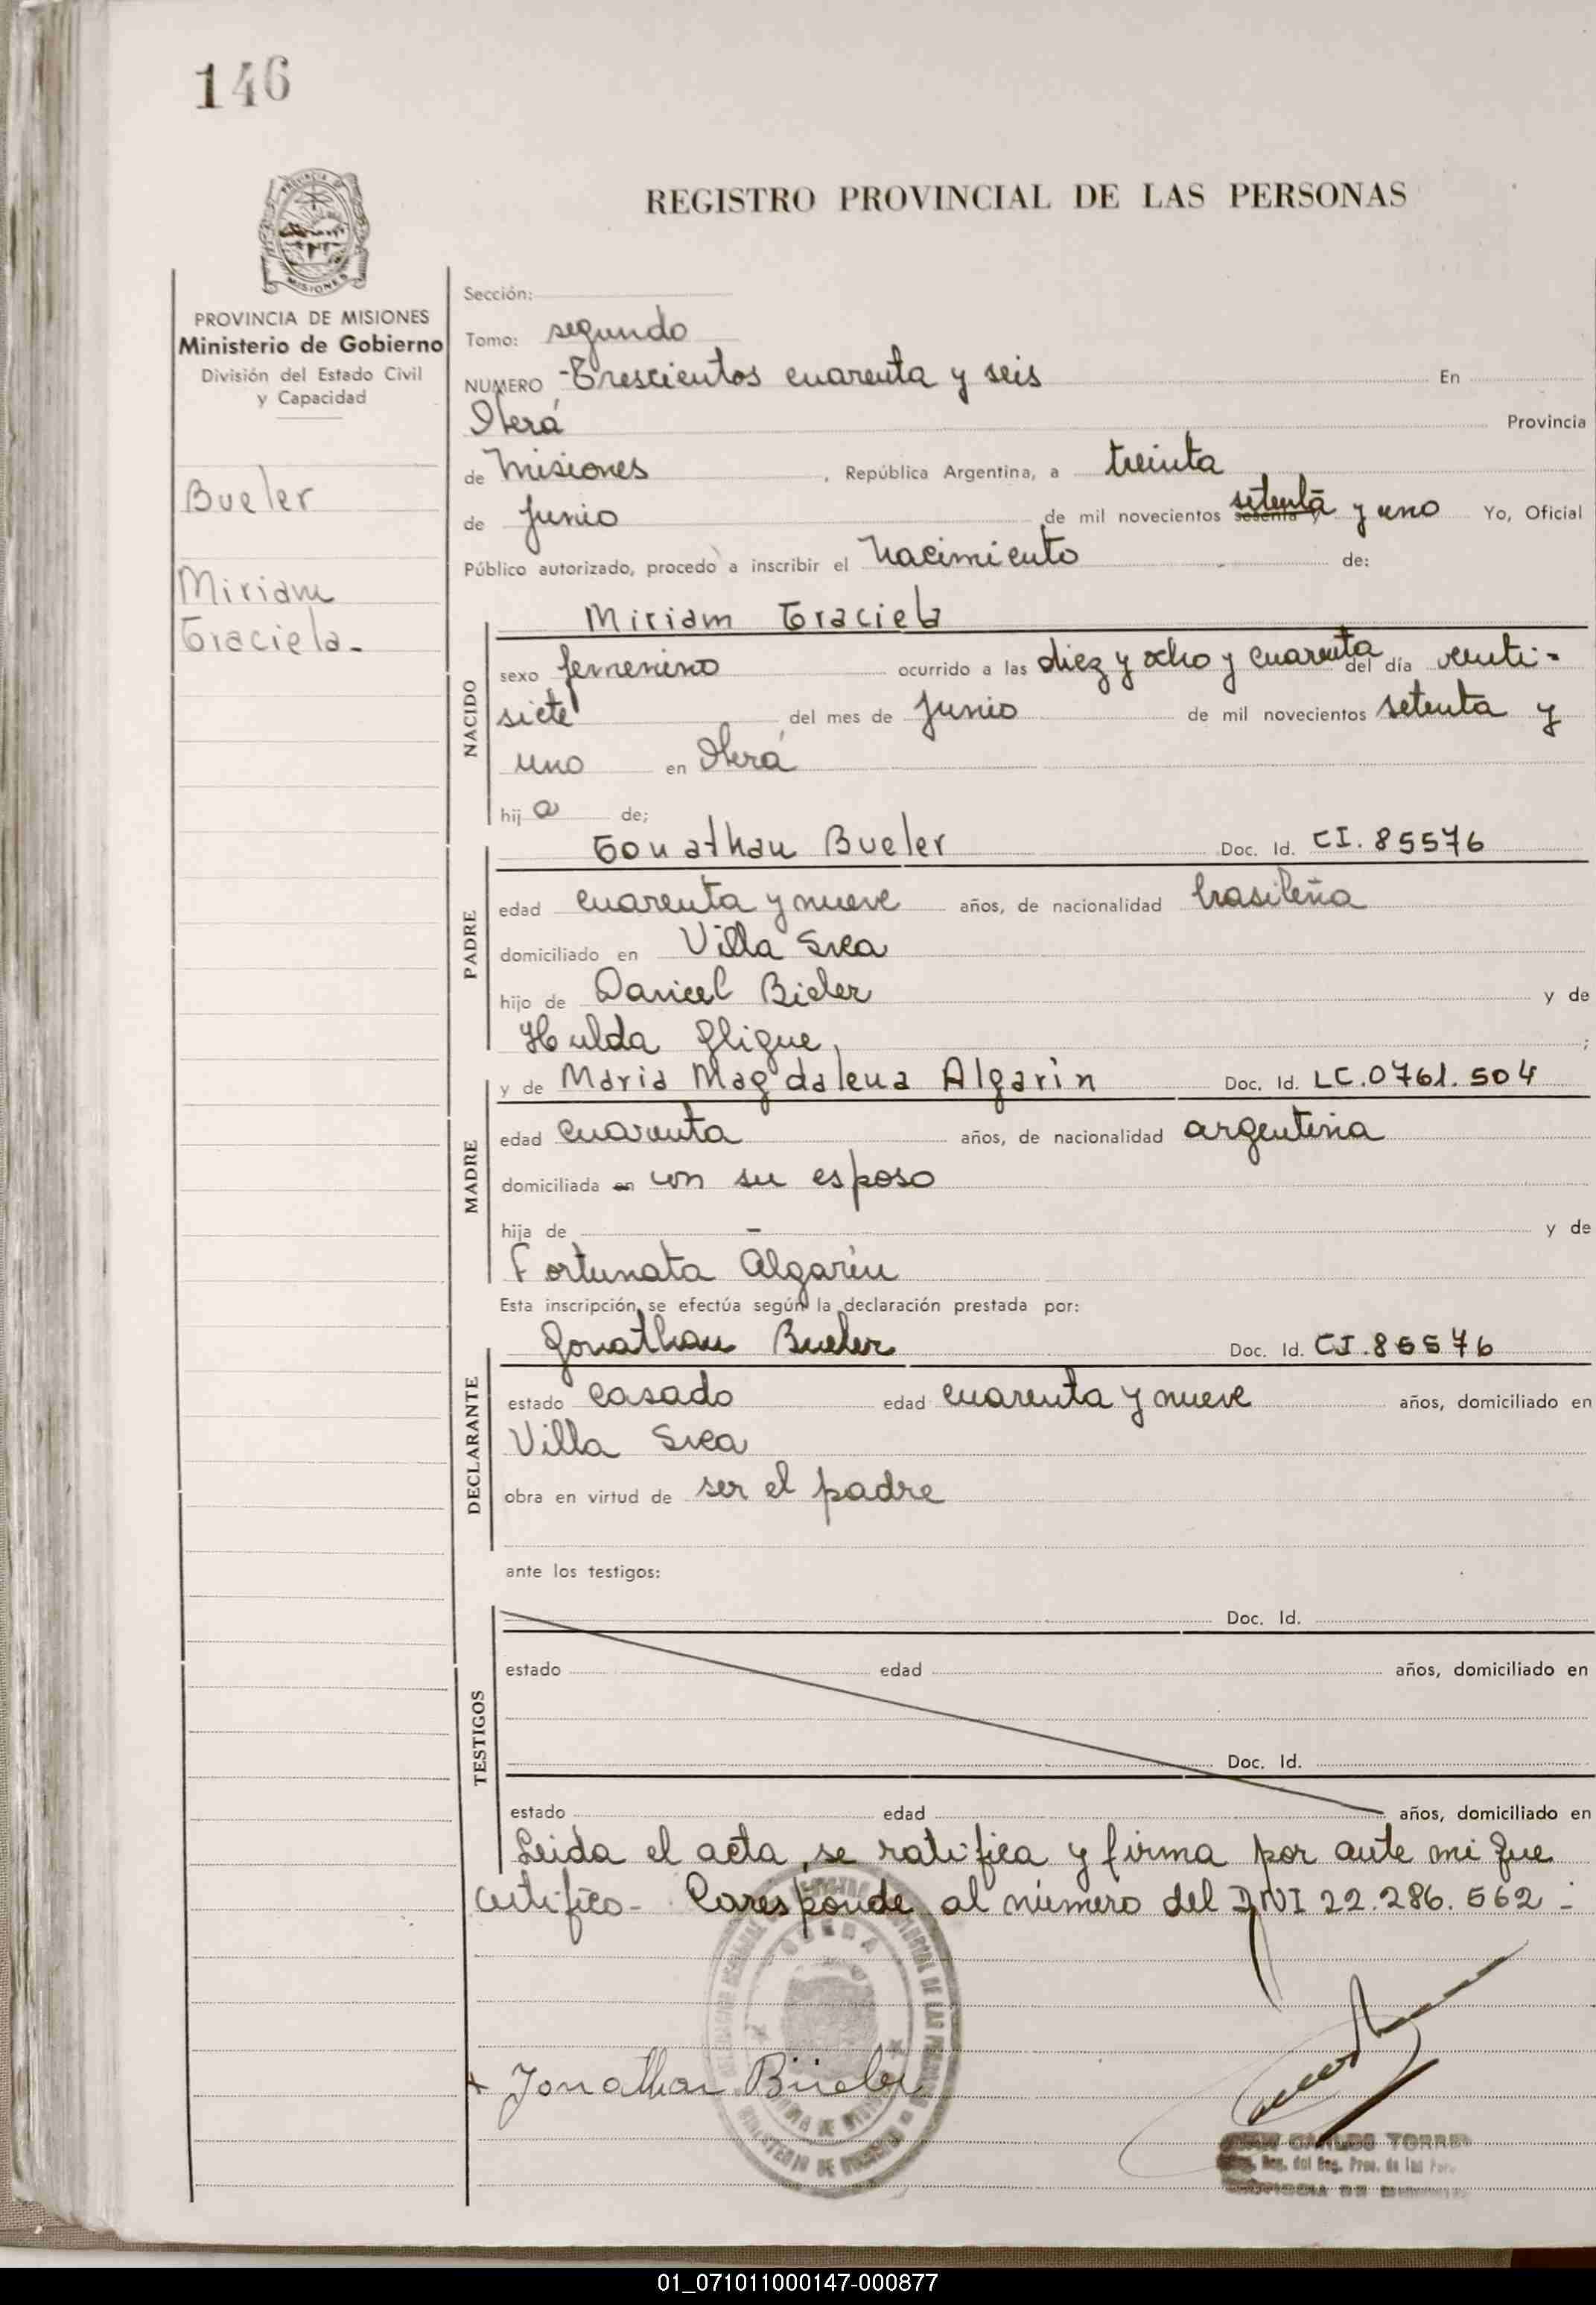 146
REGISTRO PROVINCIAL DE LAS PERSONAS
PROVINCIA DE MISIONES
Ministerio de Gobierno
División del Estado Civil
y Capacidad
Bueler
Miriam
Graciela.-
Sección:
Tomo: segundo
NUMERO -Trescientos cuarenta y seis En
Oberá Provincia
de Misiones , República Argentina, a treinta
de Junio de mil novecientos sesenta y setenta y uno Yo, Oficial
Público autorizado, procedo a inscribir el nacimiento de:
NACIDO
Miriam Graciela
sexo femenino ocurrido a las diez y ocho y cuarenta del día veinti-
siete del mes de Junio de mil novecientos setenta y
uno en Oberá
hija de;
PADRE
Jonathan Bueler Doc. Id. CI. 85576
edad cuarenta y nueve años, de nacionalidad brasileña
domiciliado en Villa Svea
hijo de Daniel Bieler y de
Hulda ;
MADRE
y de Maria Magdalena Algarin Doc. Id. LC.0761.504
edad cuarenta años, de nacionalidad argentina
domiciliada en con su esposo
hija de - y de
Fortunata Algarín
Esta inscripción se efectúa según la declaración prestada por:
DECLARANTE
Jonathan Bueler Doc. Id. CI.85576
estado casado edad cuarenta y nueve años, domiciliado en
Villa Svea
obra en virtud de ser el padre
ante los testigos:
TESTIGOS
Doc. Id.
estado edad años, domiciliado en
Doc. Id.
estado edad años, domiciliado en
Leida el acta, se ratifica y firma por ante mi que
certifico- Corresponde al número del DNI 22.286.562-
OBERA
Jonathan Büeler
CARLOS TORRE
Reg. Prov. de las Per
01_071011000147-000877